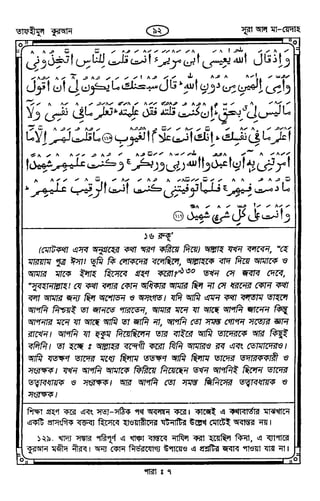 তাফহীমুল কুরআন
৯২
সূরা আল মা-য়েদাহ
وَإِذْ قَالَ اللهُ يٰعِيسَى ابْنَ مَرْيَمَ ءَاَنْتَ قُلْتَ لِلنَّاسِ اتَّخِذُونِي
وَأُمِّيَ إِلٰهَيْنِ مِنْ دُونِ اللهِ قَالَ سُبْحٰنَكَ مَا يَكُونُ لِي أَنْ أَقُولَ
مَا لَيْسَ لِي بِحَقٍّ إِنْ كُنْتُ قُلْتُهُ فَقَدْ عَلِمْتَهُ تَعْلَمُ مَا فِي نَفْسِي وَلَا
أَعْلَمُ مَا فِي نَفْسِكَ إِنَّكَ أَنْتَ عَلَّامُ الْغُيُوبِ ﴿١١٦﴾ مَا قُلْتُ لَهُمْ إِلَّا مَا
أَمَرْتَنِي بِهِ أَنِ اعْبُدُوا اللهَ رَبِّي وَرَبَّكُمْ وَكُنْتُ عَلَيْهِمْ شَهِيدًا
مَا دُمْتُ فِيهِمْ فَلَمَّا تَوَفَّيْتَنِي كُنْتَ أَنْتَ الرَّقِيبَ عَلَيْهِمْ
وَأَنْتَ عَلَى كُلِّ شَيْءٍ شَهِيدٌ ﴿١١٧﴾
১৬ রুকূ'
(মোটকথা এসব অনুগ্রহের কথা স্মরণ করিয়ে দিয়ে) আল্লাহ যখন বলবেন, "হে
মারয়াম পুত্র ঈসা! তুমি কি লোকদের বলেছিলে, আল্লাহকে বাদ দিয়ে আমাকে ও
আমার মাকে ইলাহ হিসেবে গ্রহণ করো?"১৩০ তখন সে জবাব দেবে,
"সুবহানাল্লাহ! যে কথা বলার কোন অধিকার আমার ছিল না সে ধরনের কোন কথা
বলা আমার জন্য ছিল অশোভন ও অসংগত। যদি আমি এমন কথা বলতাম তাহলে
আপনি নিশ্চয়ই তা জানতে পারতেন, আমার মনে যা আছে আপনি জানেন কিন্তু
আপনার মনে যা আছে আমি তা জানি না, আপনি তো সমস্ত গোপন সত্যের জ্ঞান
রাখেন। আপনি যা হুকুম দিয়েছিলেন তার বাইরে আমি তাদেরকে আর কিছুই
বলিনি। তা হচ্ছে ঃ আল্লাহর বন্দেগী করো যিনি আমারও রব এবং তোমাদেরও।
আমি যতক্ষণ তাদের মধ্যে ছিলাম ততক্ষণ আমি ছিলাম তাদের তদারককারী ও
সংরক্ষক। যখন আপনি আমাকে ফিরিয়ে নিয়েছেন তখন আপনিই ছিলেন তাদের
তত্বাবধায়ক ও সংরক্ষক। আর আপনি তো সমস্ত জিনিসের তত্বাবধায়ক ও
সংরক্ষক।
শিক্ষা গ্রহণ করে এবং সত্য-সঠিক পথ অবলম্বন করে। কাজেই এ কথাবার্তার মাঝখানে
একটি প্রাসংগিক বক্তব্য হিসেবে হাওয়ারীদের ঘটনাটির উল্লেখ মোটেই অবান্তর নয়।
১২৯. খাদ্য সম্ভার পরিপূর্ণ এ খাঞ্চা বাস্তবে নাযিল করা হয়েছিল কিনা, এ ব্যাপারে
কুরআন মজীদ নীরব। অন্য কোন নির্ভরযোগ্য উপায়েও এ প্রশ্নটির জবাব পাওয়া যায় না।
পারা ঃ ৭